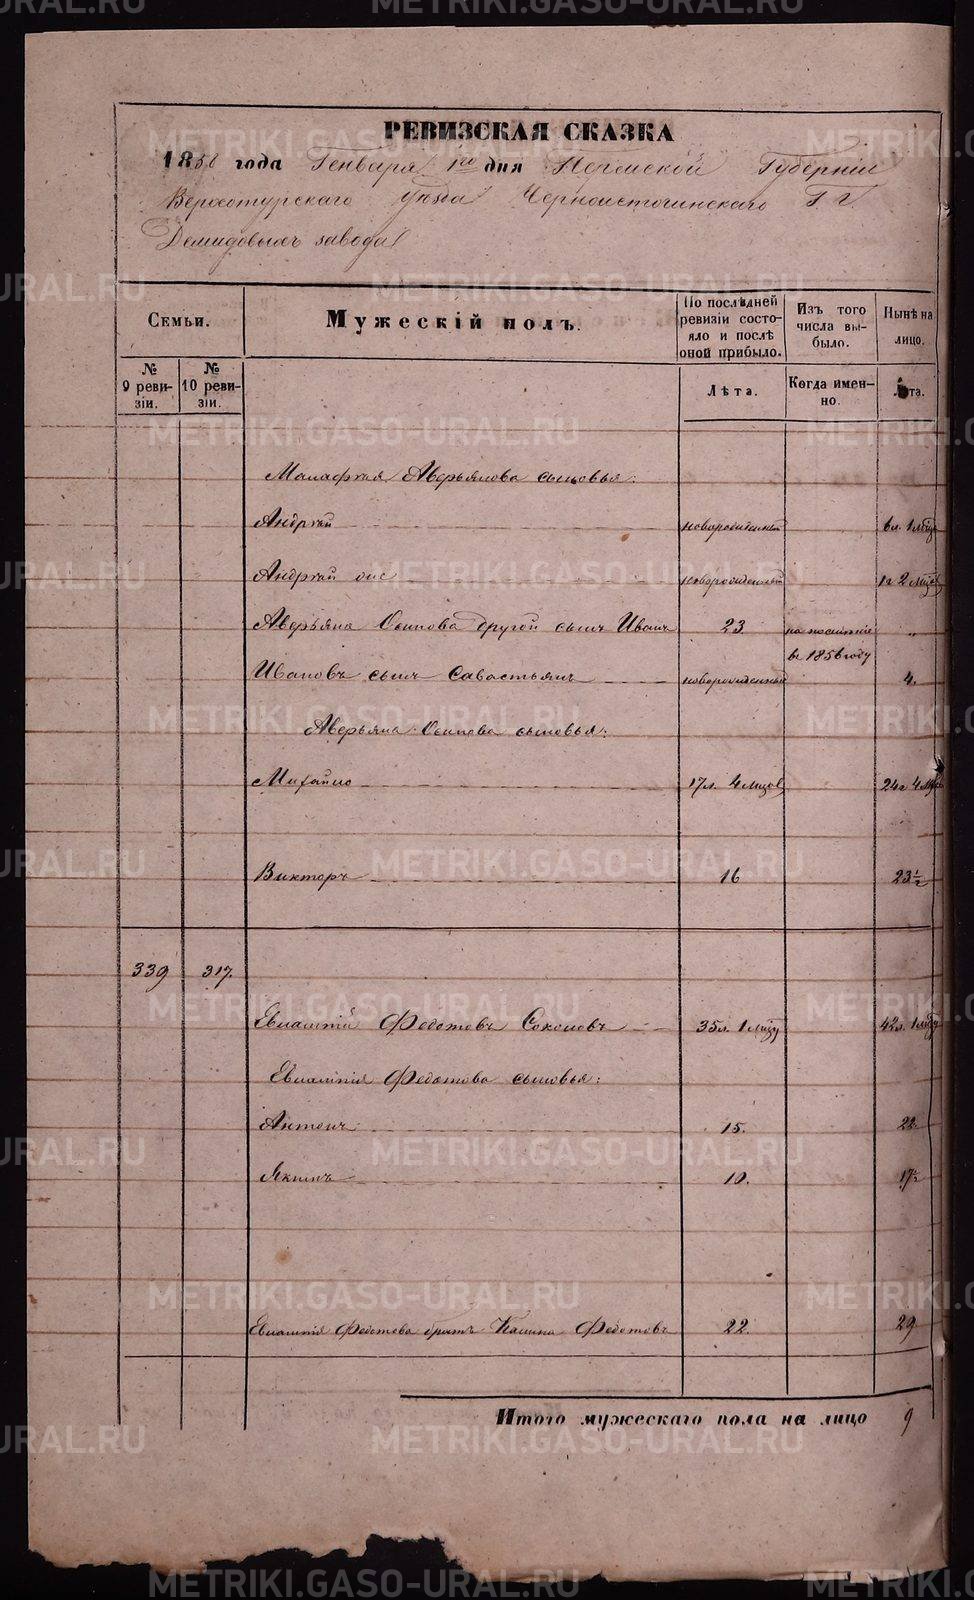 РЕВИЗСКАЯ СКАЗКА
1858 года Генваря 1го дня Пермской Губерніи
Верхотурскаго уѣзда Черноисточинскаго Г. г.
Демидовыхъ завода
Семьи.
Мужескій полъ.
По послѣдней ревизіи состояло и послѣ оной прибыло.
Изъ того числа выбыло.
Нынѣ на лицо.
№ 9 ревизіи.
№ 10 ревизіи.
Лѣта.
Когда именно.
Лѣта.
Малафѣя Аверьянова сыновья:
Андрѣй новорожденный 1
Андрѣй новорожденный 1г 2 мѣцов
Аверьяна Осипова другой сынъ Иванъ 23 „
въ 1856 году
Ивановъ сынъ Савастьянъ новорожденный 4.
Аверьяна Осипова сыновья:
Михайло 17л. 4 мѣцов 24г 4
Викторъ 16 23½
339 317.
Евлампій Федотовъ Соколовъ 35л. 1 мѣцу 42л. 1 мѣцу
Евлампія Федотова сыновья:
Антонъ 15. 22.
Якимъ 10. 17½
Евлампія Федотова братъ Калина Федотовъ 22. 29
Итого мужескаго пола на лицо 9
METRIKI.GASO-URAL.RU